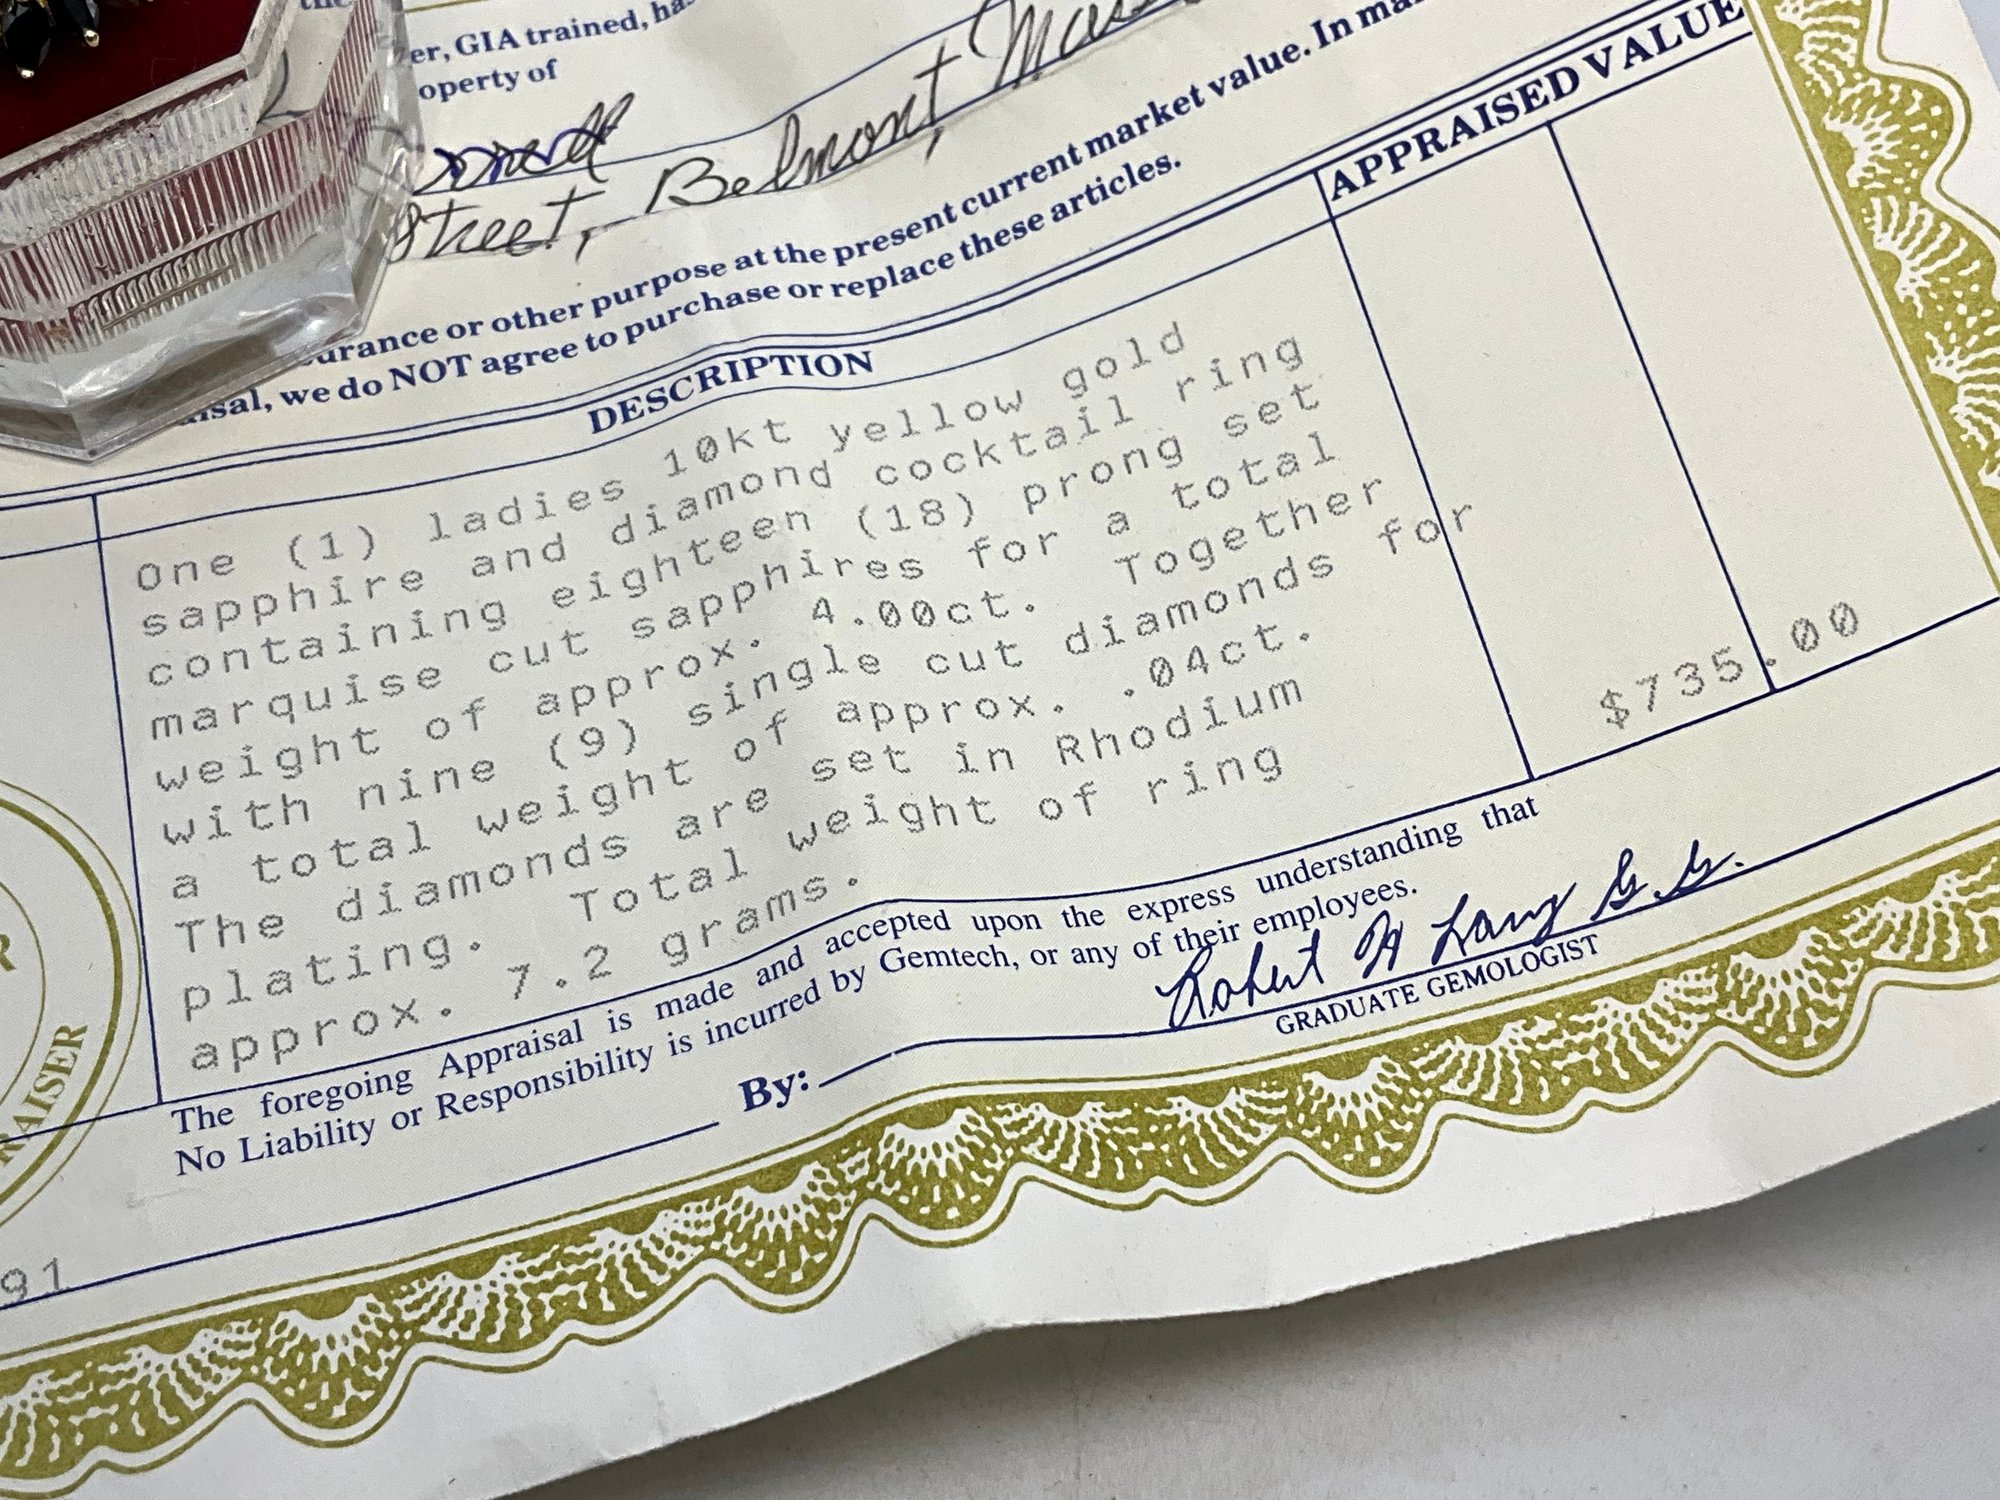 er, GIA trained, ha
operty of
Street, Belmont, Mass
urance or other purpose at the present current market value. In ma
isal, we do NOT agree to purchase or replace these articles.
DESCRIPTION
APPRAISED VALUE
One (1) ladies 10kt yellow gold
sapphire and diamond cocktail ring
containing eighteen (18) prong set
marquise cut sapphires for a total
weight of approx. 4.00ct. Together
with nine (9) single cut diamonds for
a total weight of approx. .04ct.
The diamonds are set in Rhodium
plating. Total weight of ring
approx. 7.2 grams.
$735.00
The foregoing Appraisal is made and accepted upon the express understanding that
No Liability or Responsibility is incurred by Gemtech, or any of their employees.
By:
Robert H Lang G.G.
GRADUATE GEMOLOGIST
R
RAISER
91